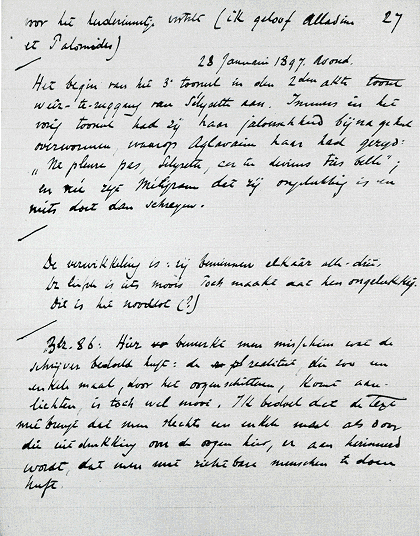 voor het herderinnetje vertelt (ik geloof Alladine 27
et Palomides)
28 Januari 1897. Avond.
Het begin van het 3e tooneel in den 2den akte toont
weêr-te-ruggang van Sélysette aan. Immers in het
vorig tooneel had zij haar jaloerschheid bijna geheel
overwonnen, waarop Aglavaine haar had gezegd:
"Ne pleure pas, Sélysette, car tu deviens très belle";
en nu zegt Méligrane dat zij ongelukkig is en
niets doet dan schreyen.
De verwikkeling is: zij beminnen elkáár alle-drie.
De liefde is iets moois Toch maakt dat hen ongelukkig.
Dit is het noodlot (?)
Blz. 86: Hier bemerkt men misschien wat de
schrijver bedoeld heeft: de realiteit, die zoo nu
enkele maal, door het oogenschitteren, komt aan-
lichten, is toch wel mooi. Ik bedoel dat de
men slechts een enkele maal als door
die uitdrukking over de oogen hier, er aan herinnerd
wordt, dat men met zichtbare menschen te doen
heeft.